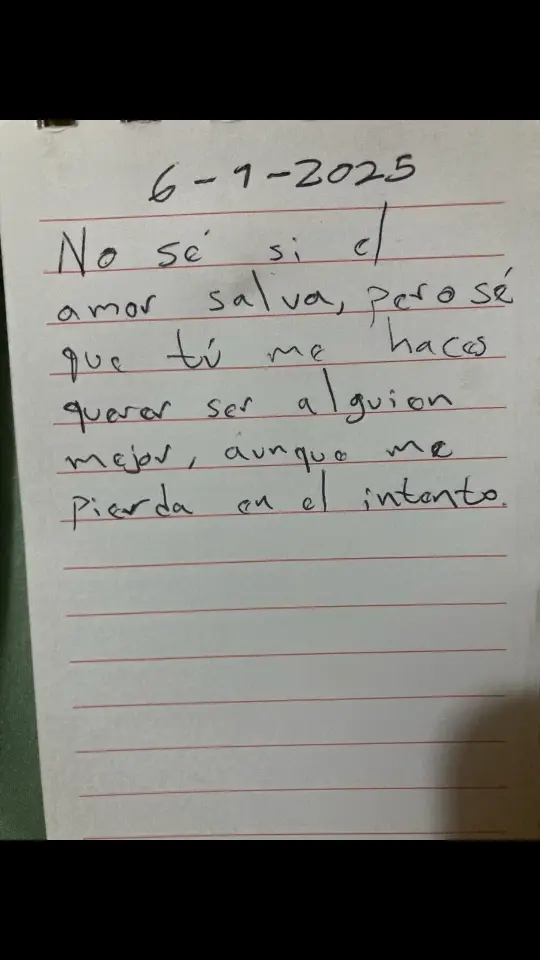 6-9-2025
No sé si el
amor salva, pero sé
que tú me haces
querer ser alguien
mejor, aunque me
pierda en el intento.